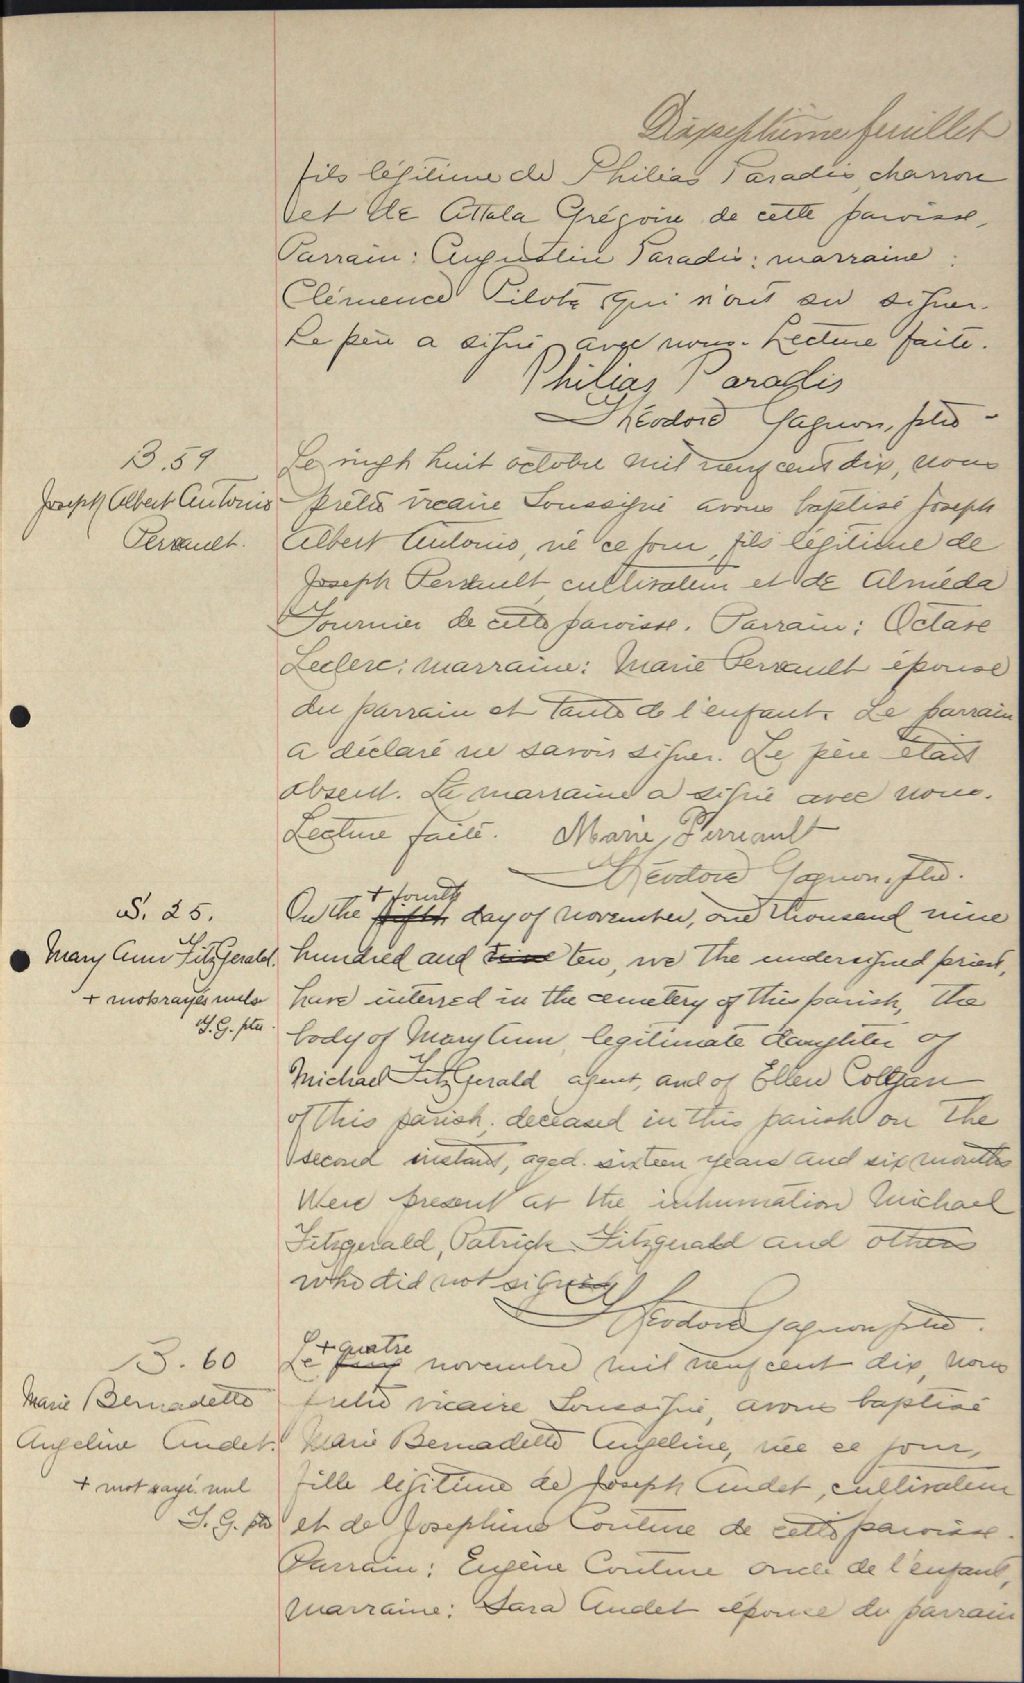 Dixseptième feuillet
fils légitime de Philias Paradis, charron
et de Attala Grégoire de cette paroisse,
Parrain: Augustin Paradis; marraine:
Clémence Pilote qui n'ont su signer.
Le père a signé avec nous. Lecture faite.
Philias Paradis
Théodore Gagnon, ptre
B. 59
Joseph Albert Antonio
Perrault.
Le vingt huit octobre mil neuf cent dix, nous
prêtre vicaire soussigné avons baptisé Joseph
Albert Antonio, né ce jour, fils légitime de
Joseph Perrault, cultivateur et de Alméda
Fournier de cette paroisse. Parrain: Octave
Leclerc; marraine: Marie Perrault épouse
du parrain et tante de l'enfant. Le parrain
a déclaré ne savoir signer. Le père était
absent. La marraine a signé avec nous.
Lecture faite. Marie Perreault
Théodore Gagnon, ptre.
S. 25.
Mary Ann FitzGerald.
+ mots rayés nuls
T. G. ptre.
+ fourth
On the fifth day of november, one thousand nine
hundred and nine ten, we the undersigned priest,
have interred in the cemetery of this parish, the
body of Mary Ann, legitimate daughter of
Michael FitzGerald agent, and of Ellen Colgan
of this parish, deceased in this parish on the
second instant, aged sixteen years and six months
Were present at the inhumation Michael
Fitzgerald, Patrick Fitzgerald and others
who did not signed
Théodore Gagnon ptre.
B. 60
Marie Bernadette
Angeline Audet.
+ mot rayé nul
T. G. ptre
+ quatre
Le cinq novembre mil neuf cent dix, nous
prêtre vicaire soussigné, avons baptisé
Marie Bernadette Angeline, née ce jour,
fille légitime de Joseph Audet, cultivateur
et de Josephine Couture de cette paroisse.
Parrain: Eugène Couture oncle de l'enfant,
marraine: Sara Audet épouse du parrain